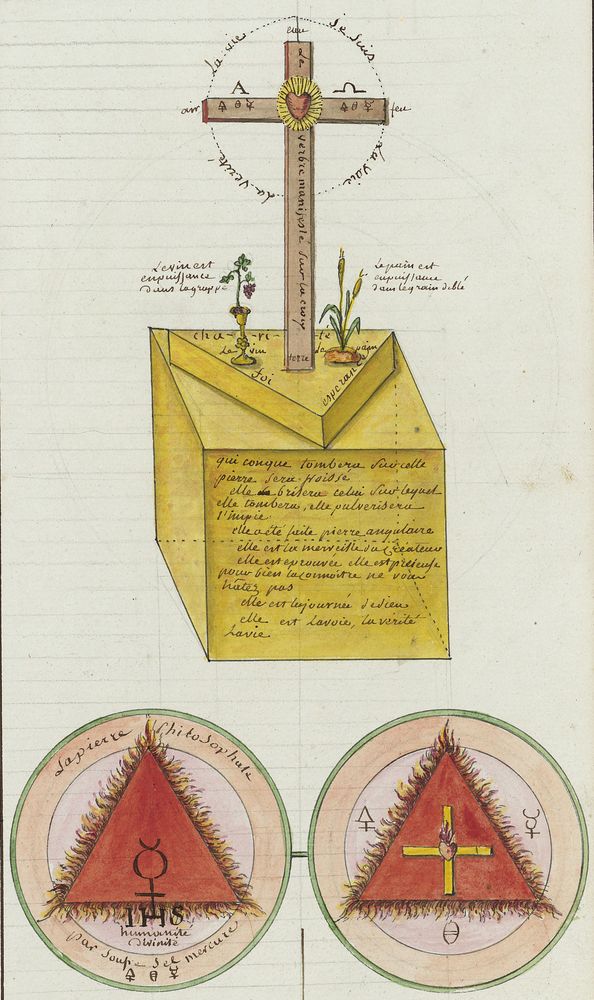 eau
je suis
la vie
la voie
la verité
A Ω
air
feu
le verbe manifesté sur la croix
terre
Le vin est
en puissance
dans la grappe
Le pain est
en puissance
dans le grain de blé
cha-ri-te
Le vin
Le pain
foi
esperance
qui conque tombera sur celle
pierre sera froissé
elle brisera celui sur lequel
elle tombera, elle pulverisera
l'impie
elle a eté faite pierre angulaire
elle est la merveille du Createur
elle est eprouvée elle est pretieuse
pour bien la connoitre ne vous
hatez pas
elle est la journée de dieu
elle est la voie, la vérité
la vie
La pierre Philosophale
☿
IHS
humanité
divinité
par soufre sel mercure